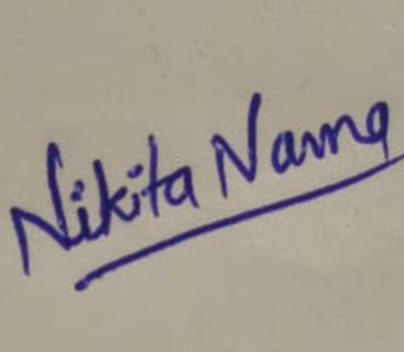 Nikita Nama